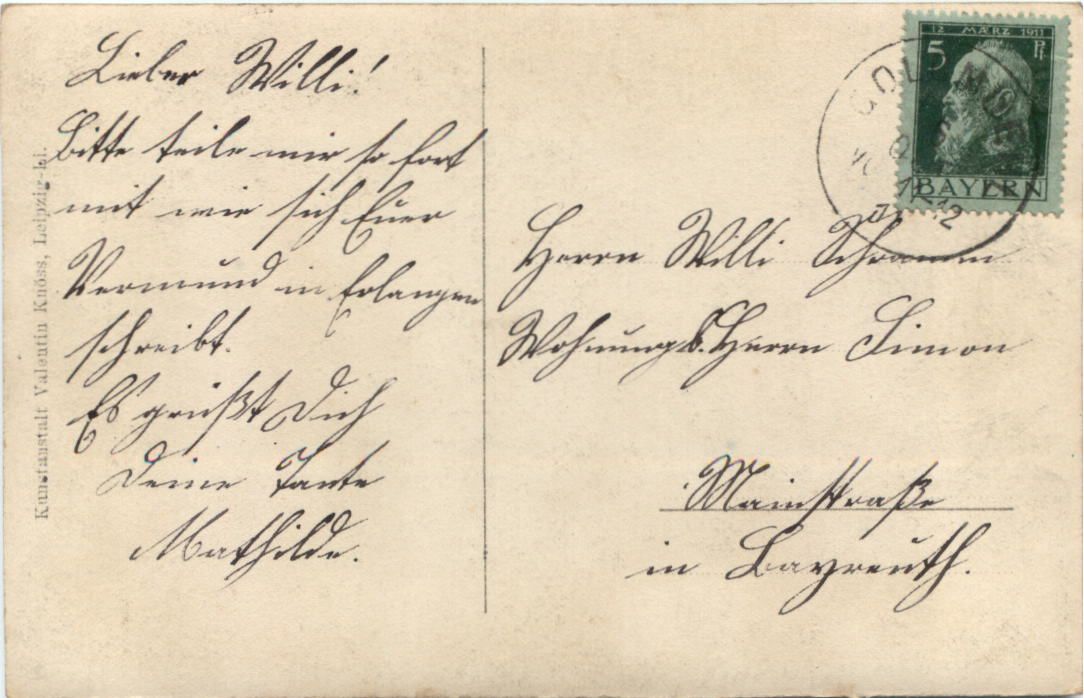 Lieber Willi!
Bitte teile mir so fort
mit wie sich Euer
Vormund in Erlangen
schreibt.
Es grüßt Dich
Deine Tante
Mathilde.
Kunstanstalt Valentin Knöss, Leipzig-
12 MÆRZ 1911
5 Pf
BAYERN
Herrn Willi Schramm
Wohnung b. Herrn Simon
Mainstraße
in Bayreuth.